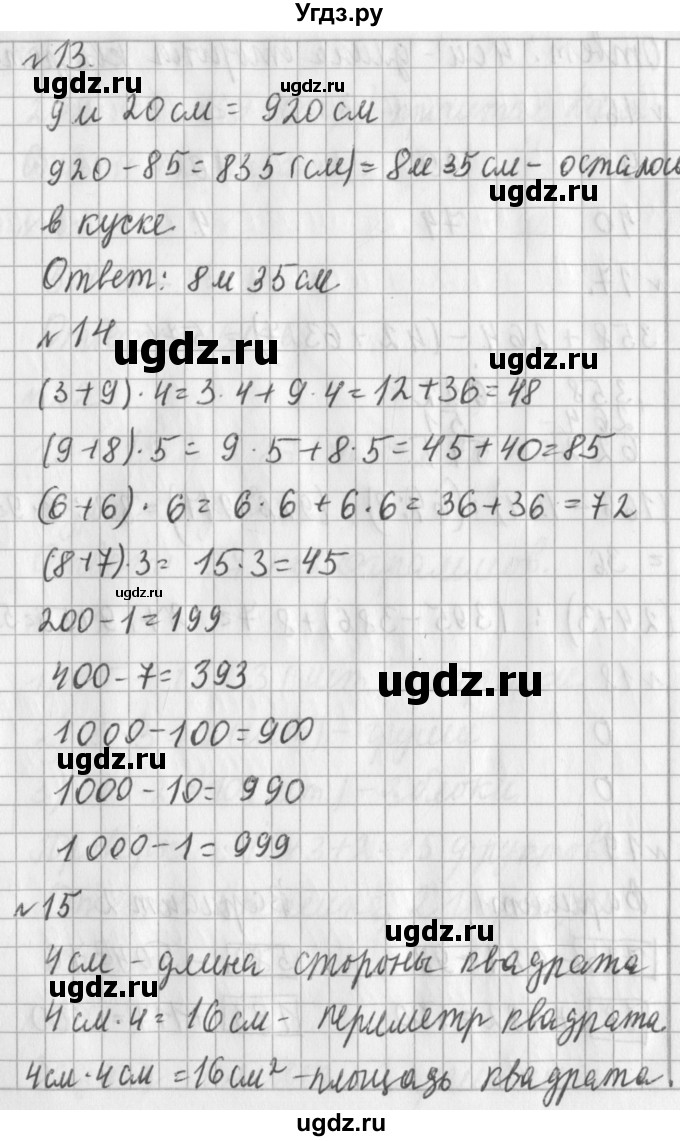 Угдз.ру
№13.
9м 20см = 920см
920-85=835(см)=8м 35см- осталось
в куске.
Ответ: 8м 35см
№14
ugdz.ru ugdz.ru
ugdz.ru
(3+9)·4=3·4+9·4=12+36=48
(9+8)·5= 9·5+8·5=45+40=85
ugdz.ru
(6+6)·6= 6·6+6·6=36+36=72
ugdz.ru
(8+7)·3= 15·3=45
ugdz.ru
200-1=199
400-7=393
ugdz.ru
1000-100=900
ugdz.ru
1000-10=990
1000-1=999
№15
ugdz.ru
4см - длина стороны квадрата
ugdz.ru
4см·4=16см- периметр квадрата.
4см·4см=16см²-площадь квадрата.
ugdz.ru